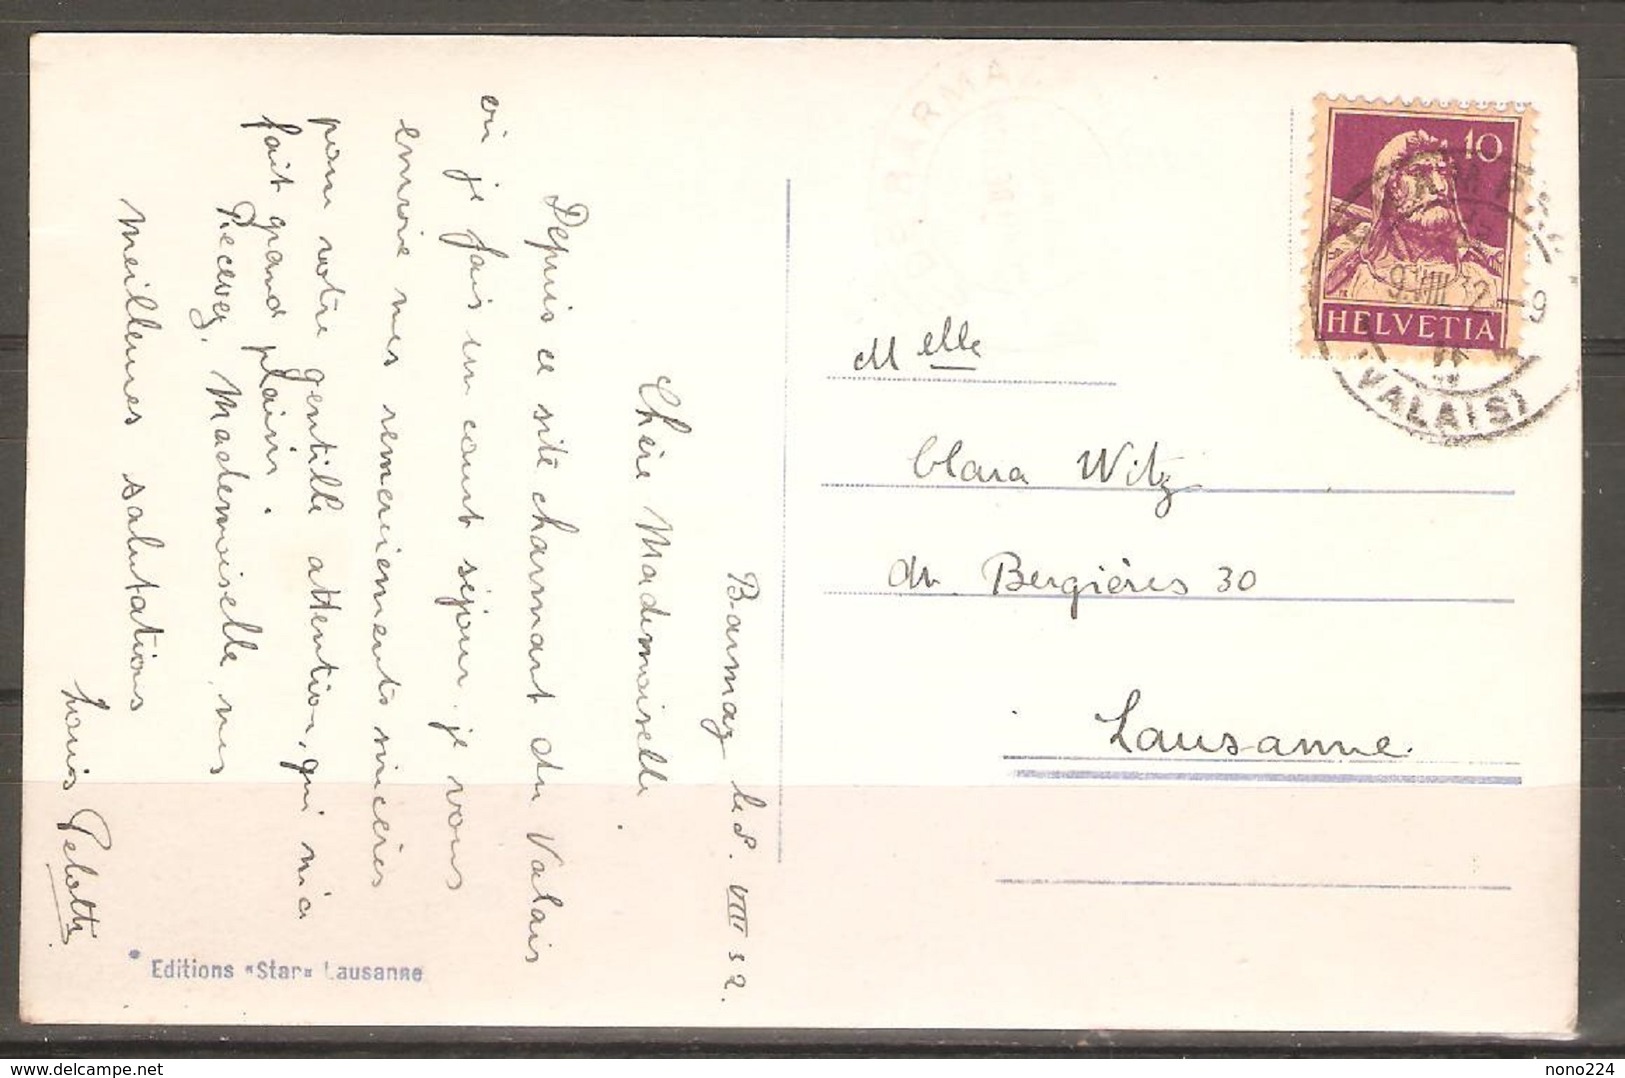 Barmaz le 8. VIII 32.
Chère Mademoiselle.
Depuis ce site charmant du Valais
où je fais un court séjour je vous
envoie mes remerciements sincères
pour votre gentille attention, qui m'a
fait grand plaisir.
Recevez, Mademoiselle, mes
meilleures salutations
Louis
Editions "Star" Lausanne
10
HELVETIA
9.VIII 32 - 9
(VALAIS)
Melle
Clara Witz
Av. Bergières 30
Lausanne.
delcampe.net
nono224